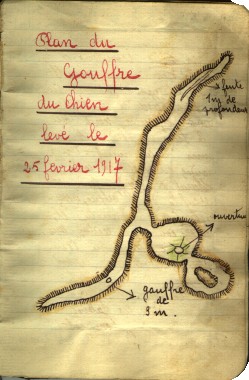 Plan du
Gouffre
du Chien
levé le
25 février 1917
→ fente
1m de
profondeur
ouverture
gouffre
de
3 m.